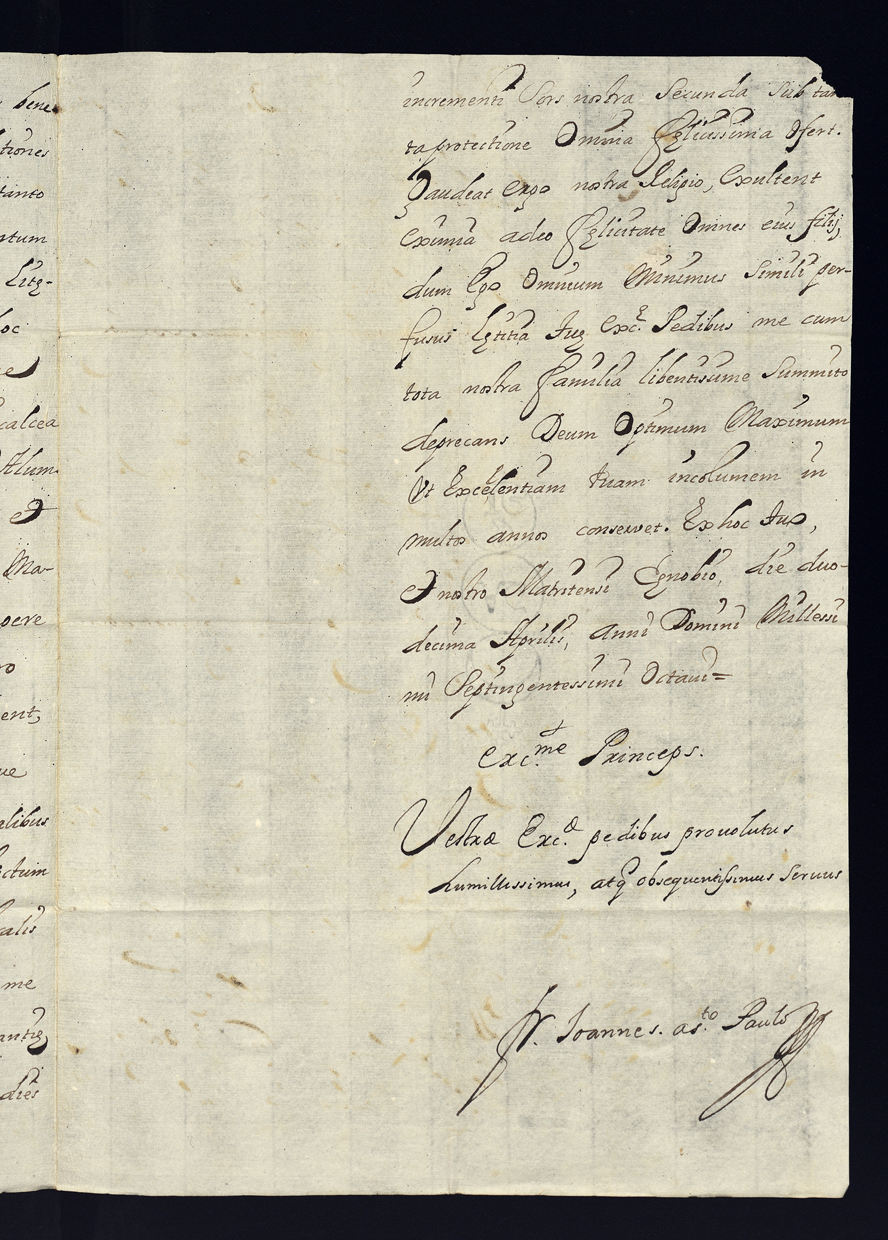 bene
tiones
tanto
ntum
Litę-
hoc
e
calcea
Alum
et
Ma-
pere
ro
ent,
ue
alibus
ctum
calis
me
antię
dies
incrementi Sors nostra Secunda Sub tan
ta protectione Omnia fęlicissima Ofert.
Gaudeat ergo nostra Religio, Exultent
Eximia adeo fęlicitate Omnes eius filij,
dum Ego Omnium Minimus Simili per-
fusus lętitia tuę Exc.ę Pedibus me cum
tota nostra familia libentissime Summito
deprecans Deum Optimum Maximum
Vt Excelentiam tuam incolumem in
multos annos conservet. Ex hoc tuo,
et nostro Matritensi Cęnobio, die duo-
decima Aprilis, anni Domini Millessi
mi Septingentessimi Octaui=
Exc.me Princeps.
Vestræ Exc.ę pedibus prouolutus
humillissimus, atq obsequentissimus Seruus
Fr. Ioannes. a s.to Paulo